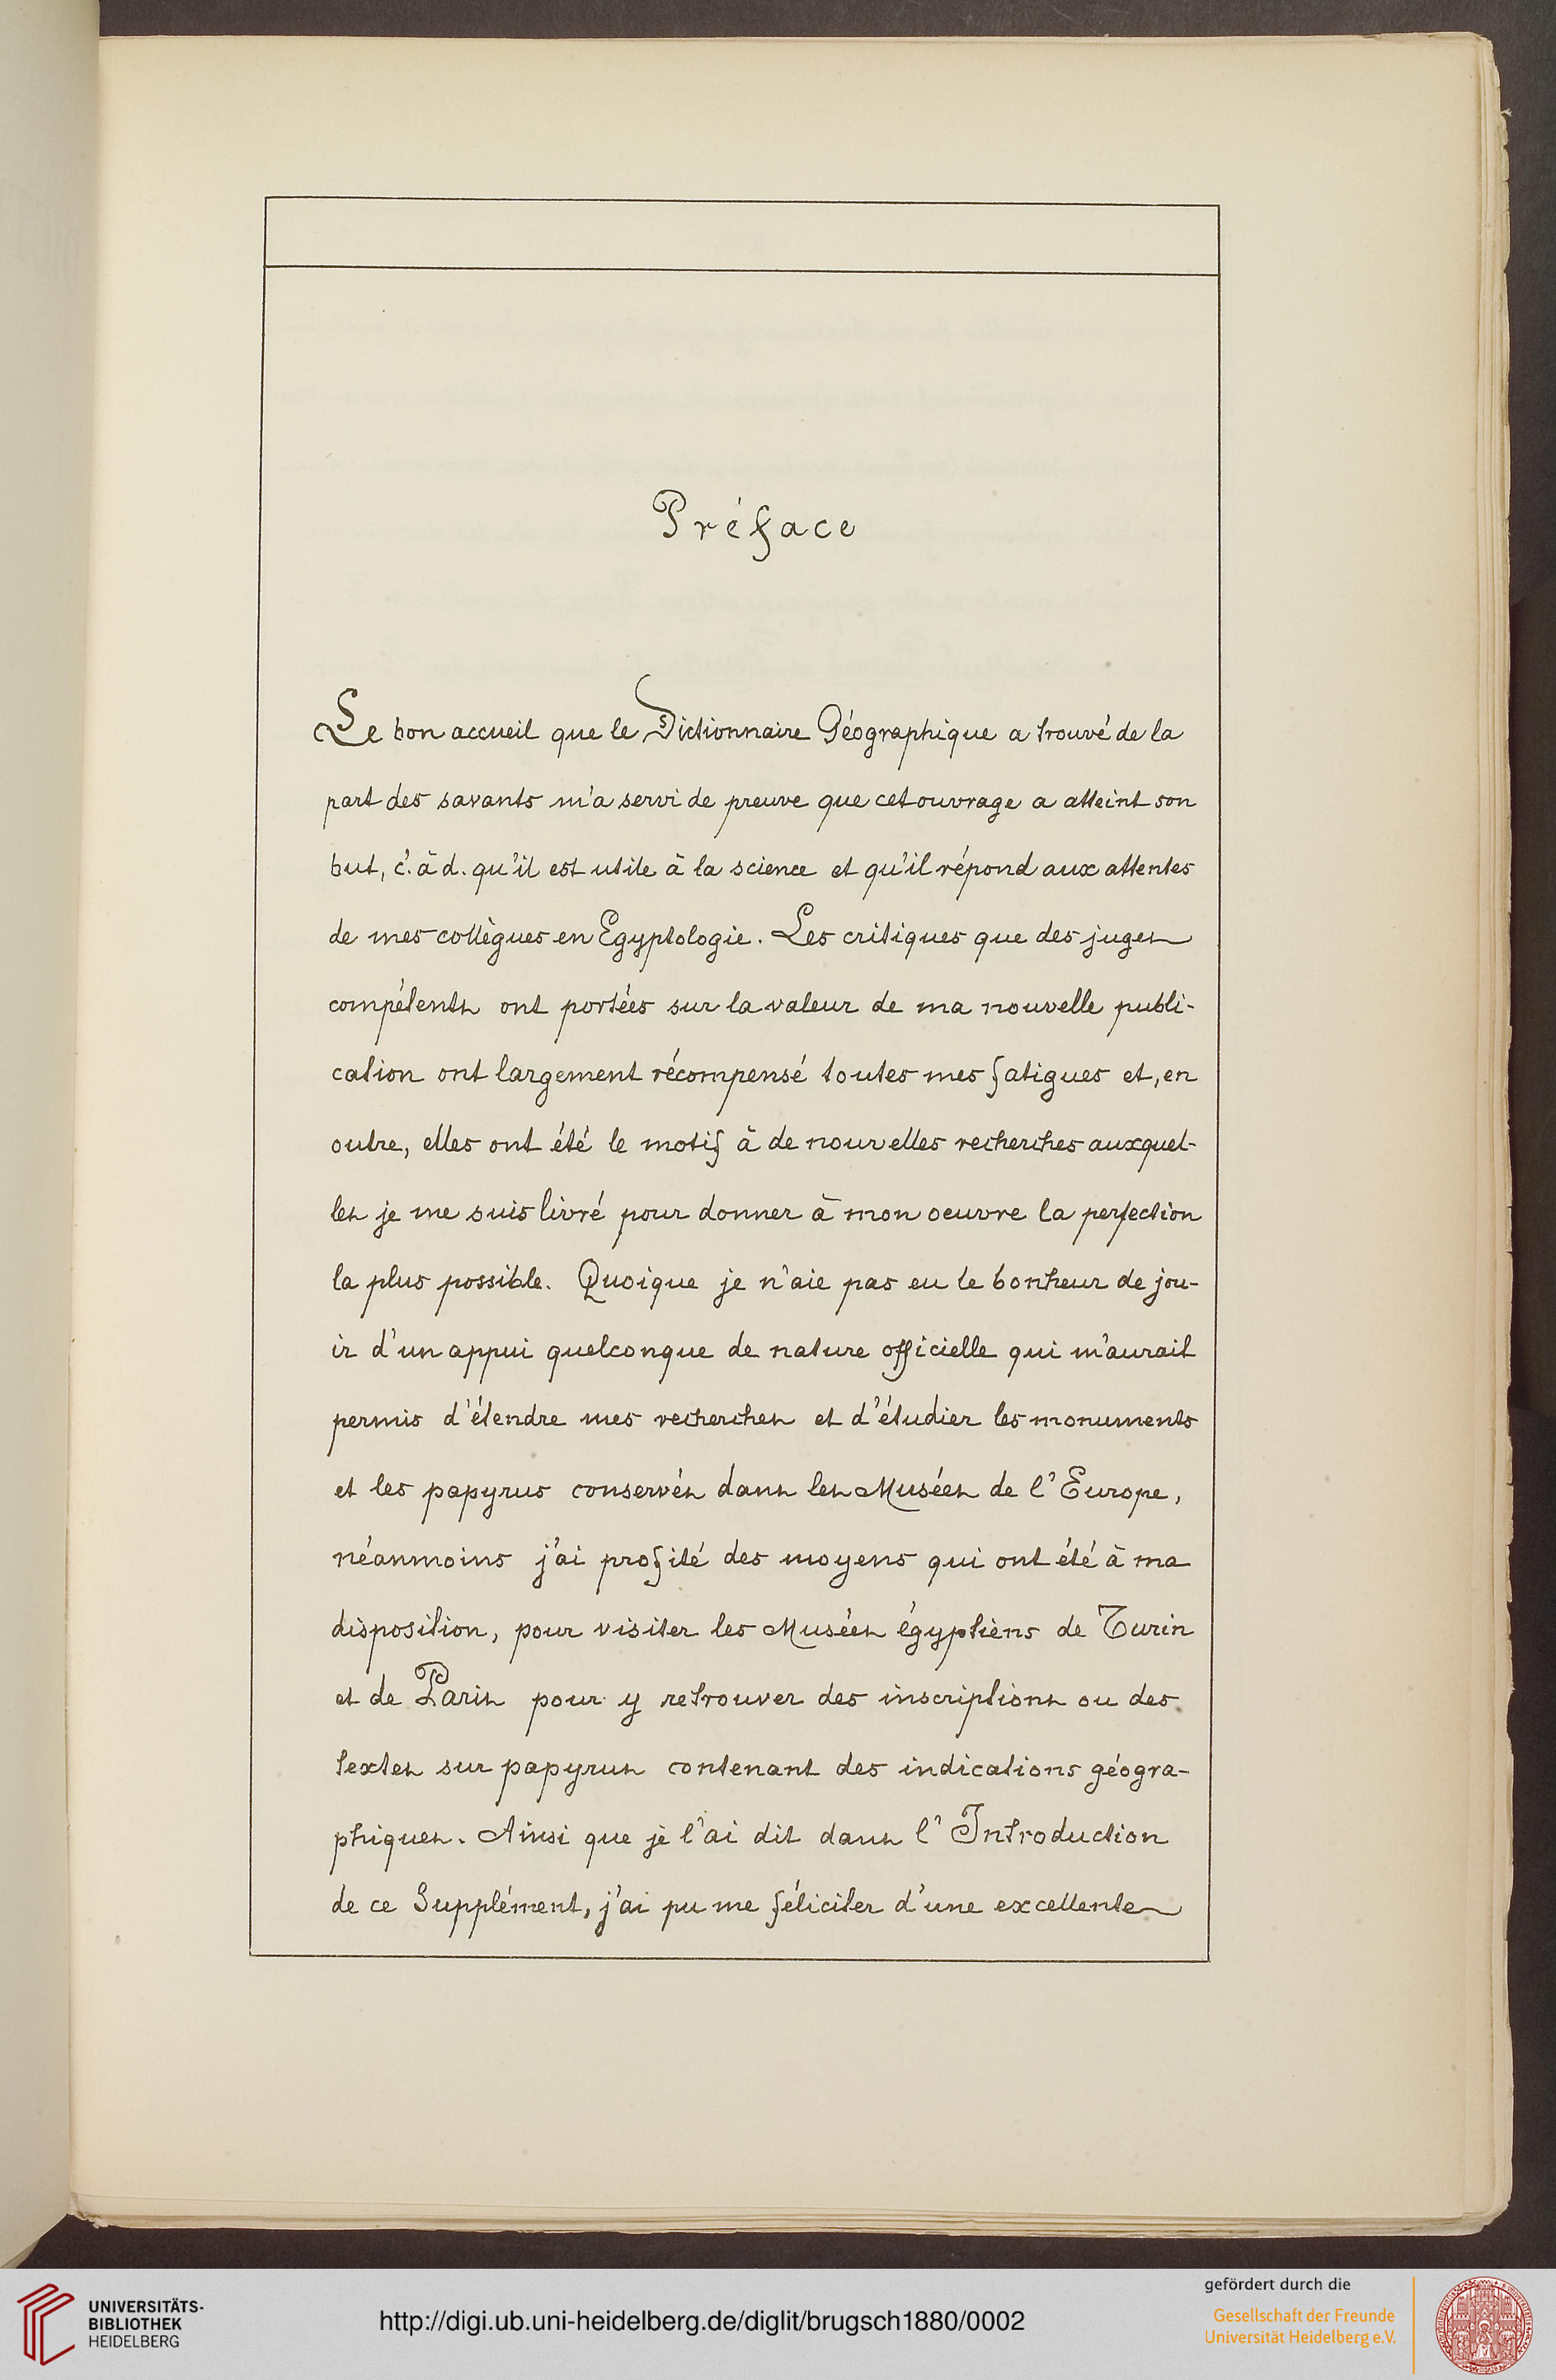 Préface
Le bon accueil que le Dictionnaire Géographique a trouvé de la
part des savants m'a servi de preuve que cet ouvrage a atteint son
but, c'. à d. qu'il est utile à la science et qu'il répond aux attentes
de mes collègues en Egyptologie. Les critiques que des juges
compétents ont portées sur la valeur de ma nouvelle publi-
cation ont largement récompensé toutes mes fatigues et, en
outre, elles ont été le motif à de nouvelles recherches auxquel-
les je me suis livré pour donner à mon oeuvre la perfection
la plus possible. Quoique je n'aie pas eu le bonheur de jou-
ir d'un appui quelconque de nature officielle qui m'aurait
permis d'étendre mes recherches et d'étudier les monuments
et les papyrus conservés dans les Musées de l'Europe,
néanmoins j'ai profité des moyens qui ont été à ma
disposition, pour visiter les Musées égyptiens de Turin
et de Paris pour y retrouver des inscriptions ou des
textes sur papyrus contenant des indications géogra-
phiques. Ainsi que je l'ai dit dans l'Introduction
de ce Supplément, j'ai pu me féliciter d'une excellente
UNIVERSITÄTS-
BIBLIOTHEK
HEIDELBERG
http://digi.ub.uni-heidelberg.de/diglit/brugsch1880/0002
gefördert durch die
Gesellschaft der Freunde
Universität Heidelberg e.V.